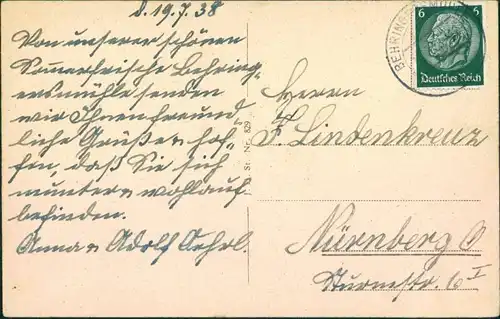 d. 19.7.38
Von unserer schönen
Sommerfrische Behring„
ersmühle senden
wir Ihnen freund„
liche Grüße u. hof„
fen, daß Sie sich
munter u. wohlauf
befinden.
Anna u. Adolf Oehrl.
St Nr. 829
BEHRINGERSMÜHLE
6 6
Deutsches Reich
Herrn
F. Lindenkreuz
Nürnberg O
Sturmstr. 6 I